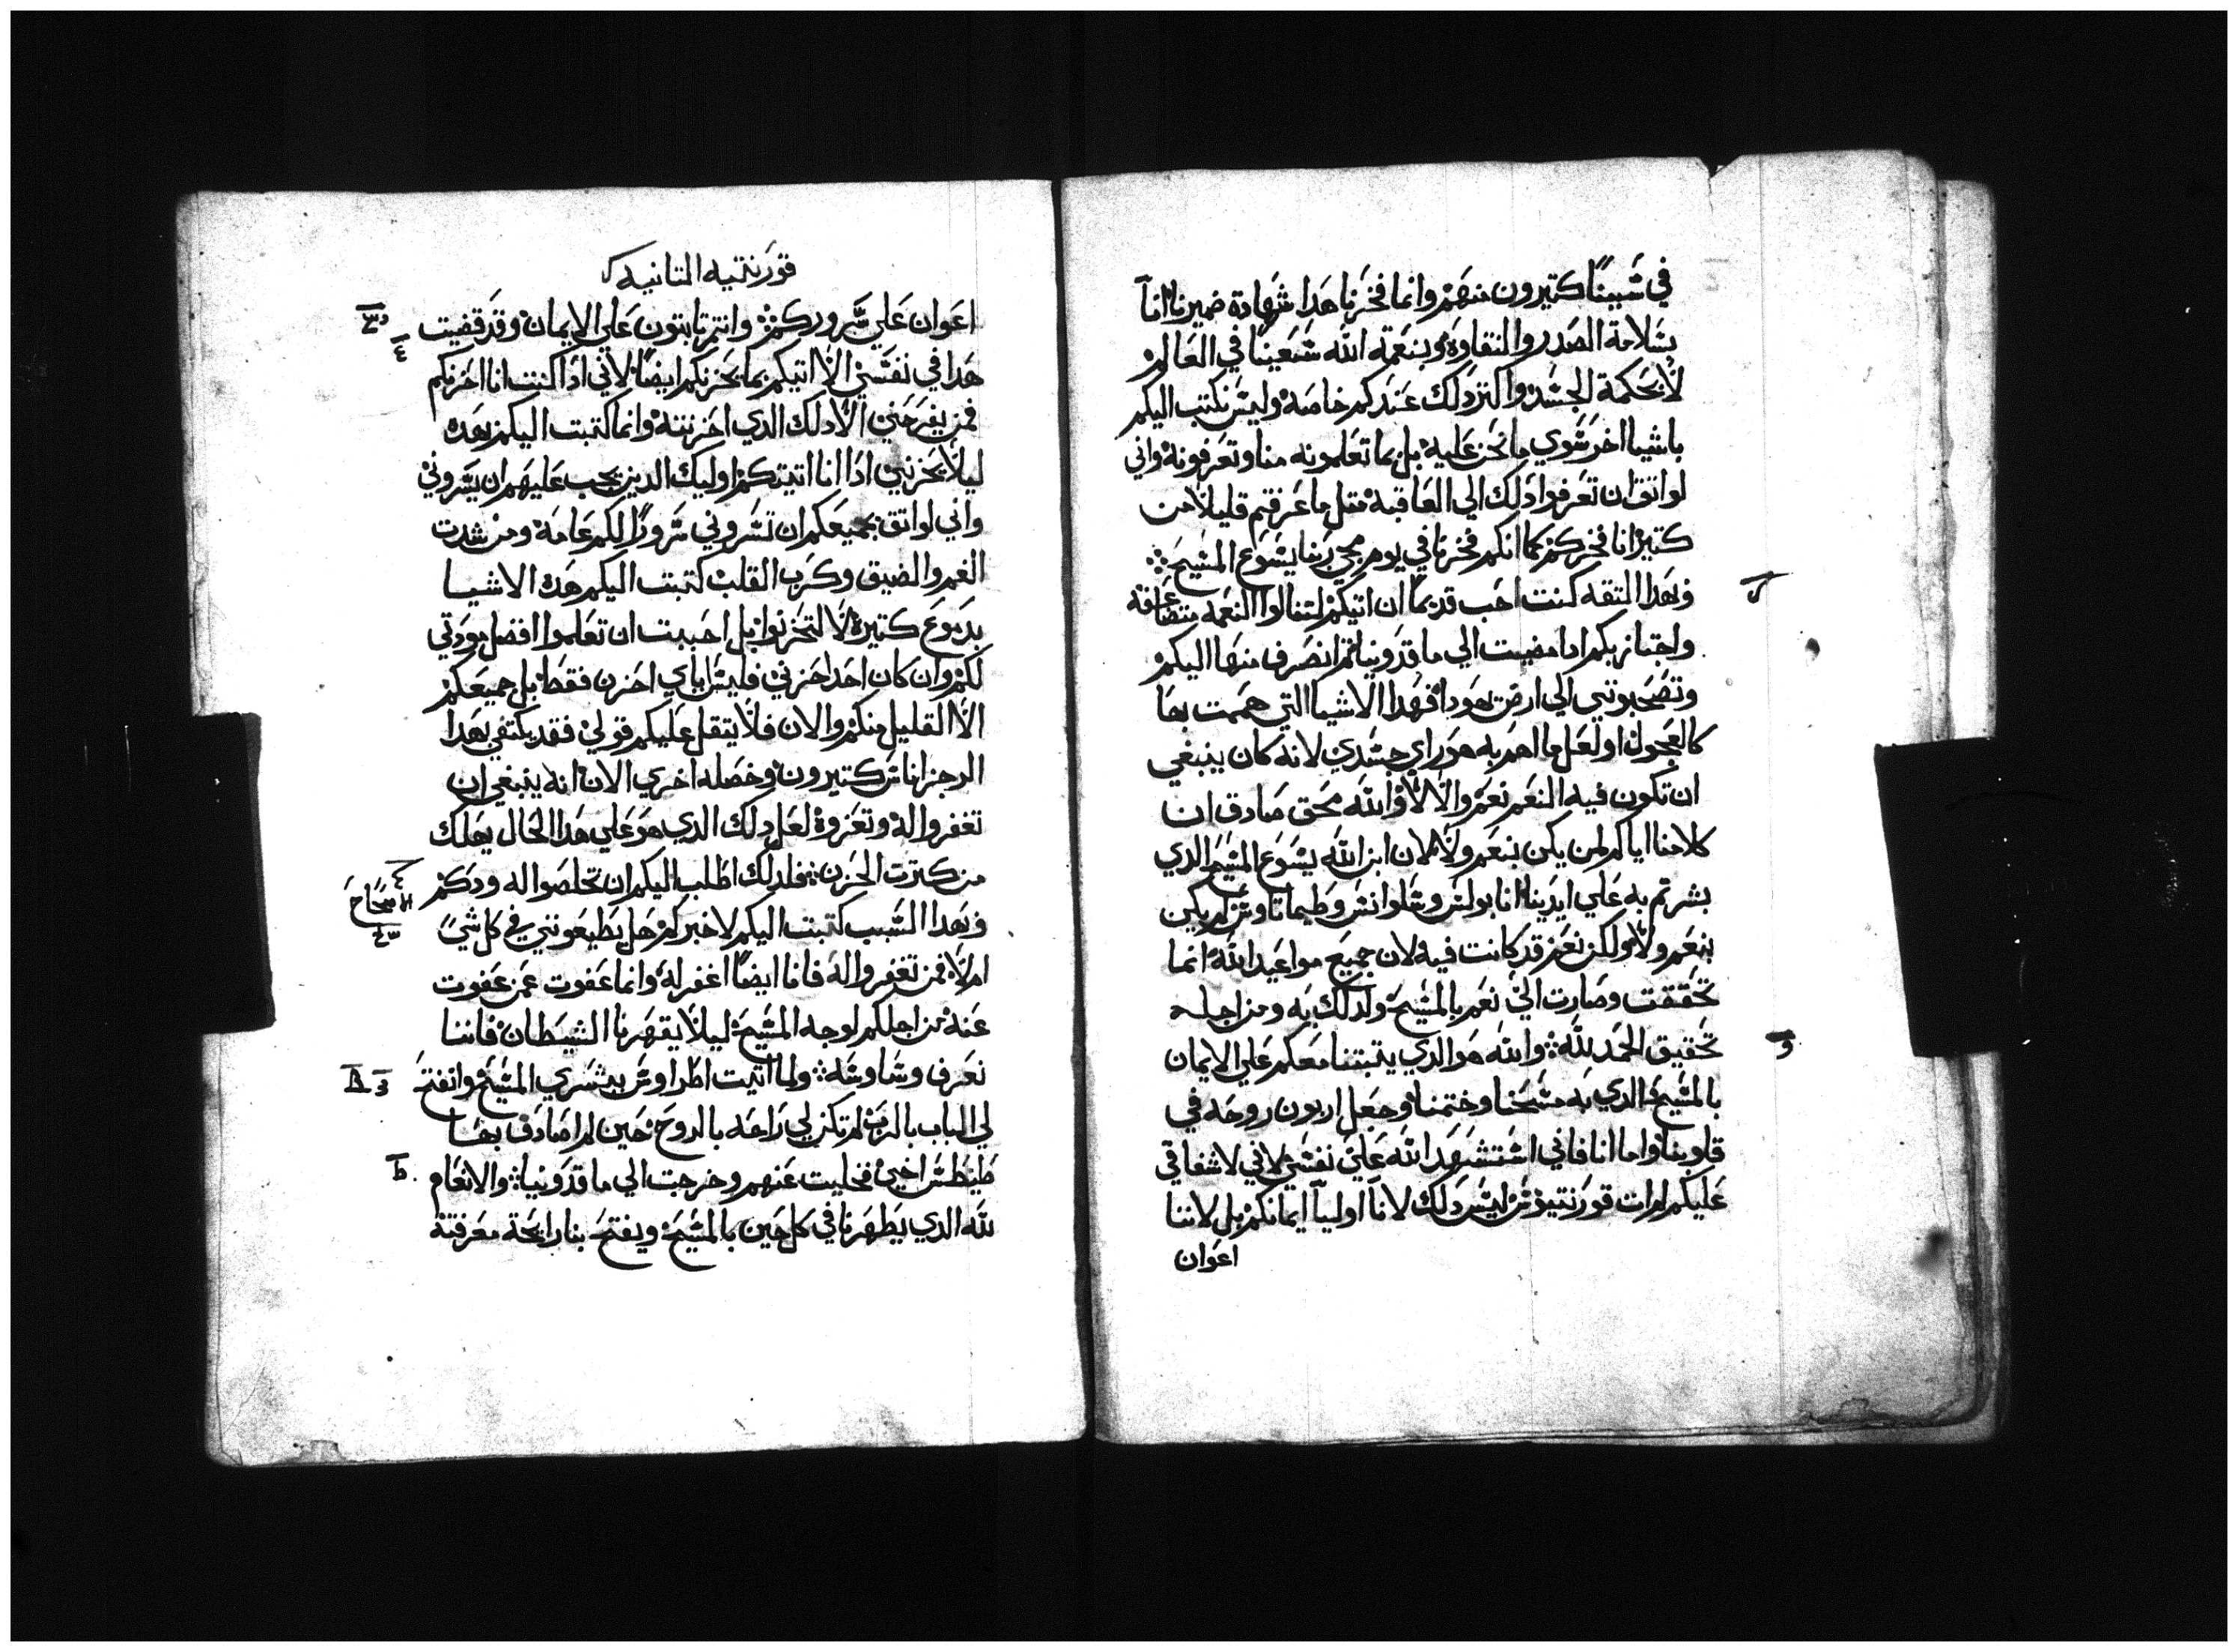 في سببنا كتيرون منهم وانما فخرنا هدا شهادة ضميرنا اننا
بسلامة الصدر والنقاوة وبنعمة الله سعينا في العالم
لا بحكمة الجسد واكتر دلك عندكم خاصه وليس نكتب اليكم
باشيا اخر سوي ما نحن عليه بل بما تعلمونه منا وتعرفونه واني
لواتق ان تعرفوا دلك الي العاقبه متل ما عرفتم قليلا من
كتير انا فخركم كما انكم فخرنا في يوم مجي ربنا يسوع المسيح
وبهدا التقه كنت احب قديما ان اتيكم لتنالوا النعمه متضاعفه
واجتاز بكم ادا مضيت الي ماقدونيا تم انصرف منها اليكم
وتصحبوني الي ارض يهودا فهدا الاشيا التي هممت بها
كالعجول او لعل ما اهم به هو راي جسدي لانه كان ينبغي
ان تكون فيه النعم نعم والا لا والله محق صادق ان
كلامنا اياكم لم يكن بنعم ولا لان ابن الله يسوع المسيح الدي
بشرتم به علي ايدينا انا بولس وسلوانس وطيماتاوس لم يكن
بنعم ولا ولكن نعم قد كانت فيه لان جميع مواعيد الله انما
تحققت وصارت الي نعم بالمسيح ولدلك به ومن اجله
تحقيق الحمد لله والله هو الدي يتبتنا معكم علي الايمان
بالمسيح الدي به مسحنا وختمنا وجعل اربون روحه في
قلوبنا واما انا فاني استشهد الله علي نفسي لاني لاشفاقي
عليكم لم ات قورنتيوس ليس دلك لانا اوليا ايمانكم بل لاننا
اعوان
قورنتيه التانيه
اعوان علي سروركم وانتم تابتون علي الايمان وقد قضيت
هدا في نفسي الا اتيكم بما يحزنكم ايضا لاني ادا كنت انا احزنكم
فمن يفرحني الا دلك الدي احزنته وانما كتبت اليكم بهده
ليلا يحزنني ادا انا اتيتكم اوليك الدين يجب عليهم ان يسروني
واني لواتق بجميعكم ان تسروني سرورا لكم عامه ومن شدت
الغم والضيق وكرب القلب كتبت اليكم هده الاشيا
بدموع كتيره لا لتحزنوا بل احببت ان تعلموا افضل مودتي
لكم وان كان احد احزني فليس اياي احزن فقط بل جميعكم
الا القليل منكم والان فلا يتقل عليكم قولي فقد يكتفي بهدا
الرجز اناس كتيرون وخصله اخري الان انه ينبغي ان
تغفروا له وتعزوه لعل دلك الدي هو علي هدا الحال يهلك
من كترت الحزن فلدلك اطلب اليكم ان تخلصوا له ودكم
وبهدا السبب كتبت اليكم لاخبركم هل تطيعوني في كل شي
الاصحاح
ام لا فمن تغفروا له فانا ايضا اغفر له وانما عفوت عمن عفوت
عنه من اجلكم لوجه المسيح ليلا يقهرنا الشيطان فاننا
نعرف وساوسه ولما اتيت اطراوس ببشري المسيح وانفتح
لي الباب بالرب لم تكن لي راحه بالروح حين لم اصادف بها
طيطس اخي فخليت عنهم وخرجت الي ماقدونيا والانعام
لله الدي يظهرنا في كل حين بالمسيح ويفتح بنا رايحة معرفته